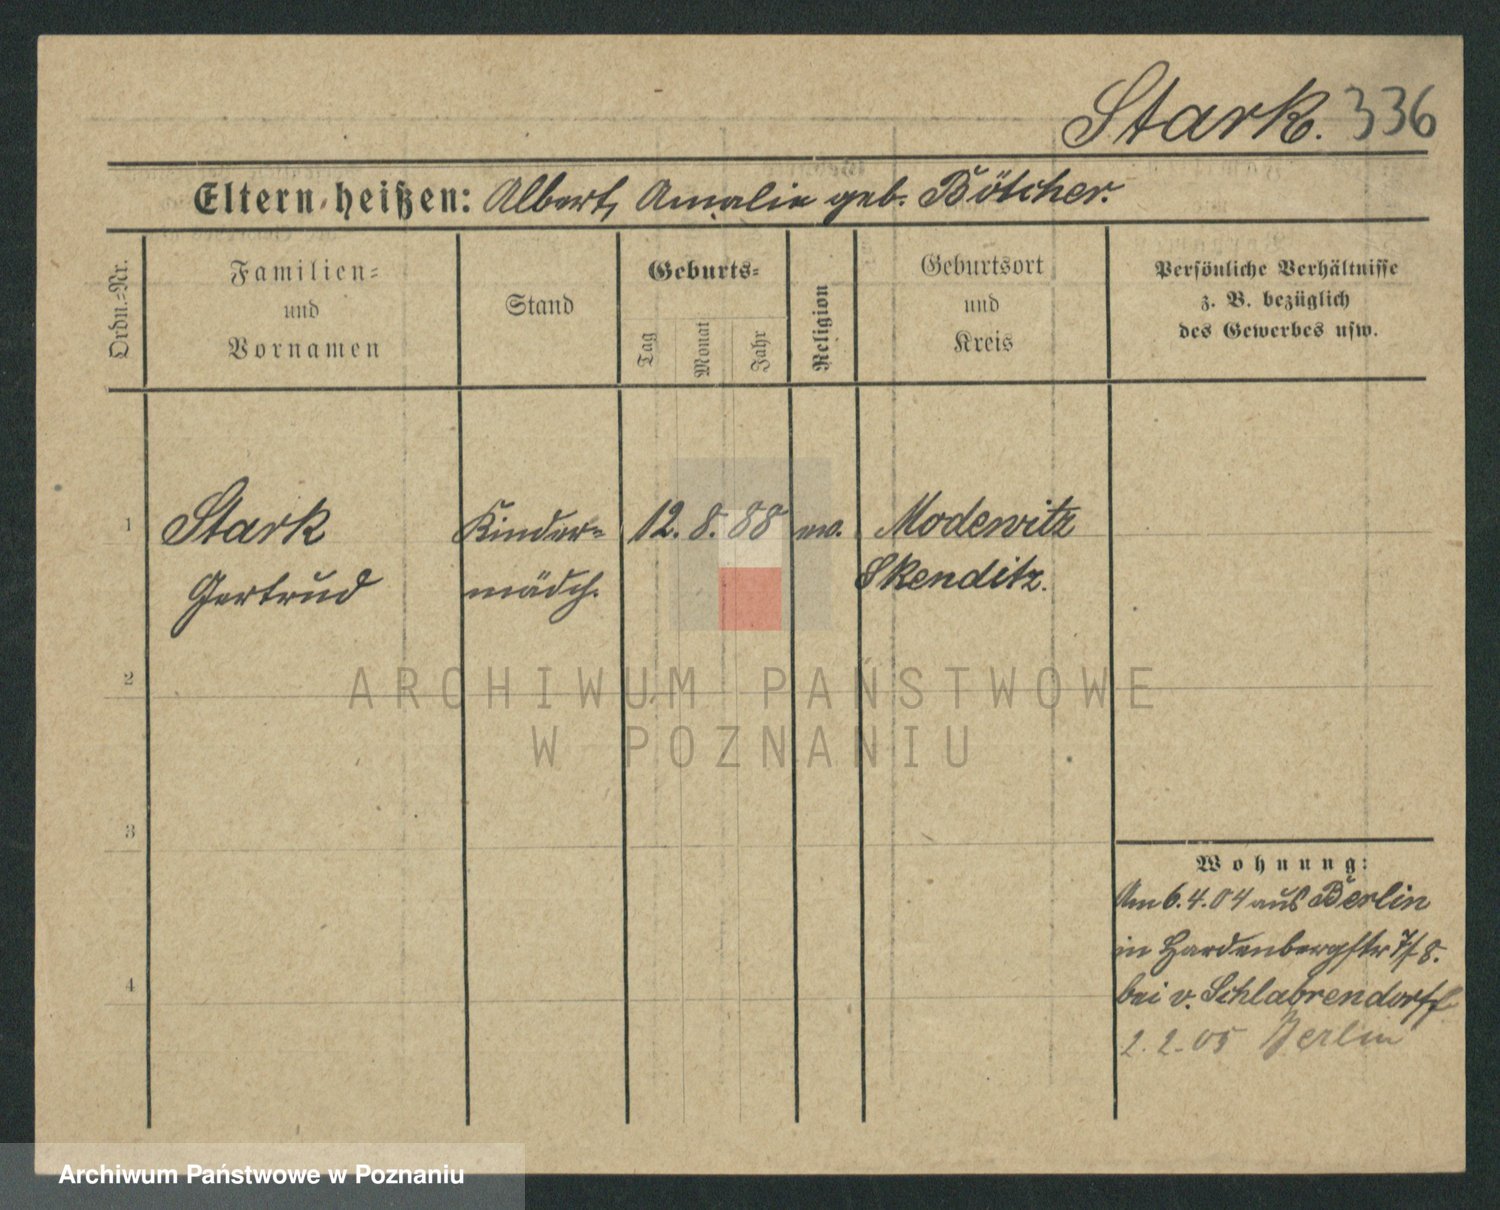 Stark. 336
Eltern heißen: Albert, Amalie geb. Bötcher.
Ordn.-Nr.
Familien-
und
Vornamen
Stand
Geburts-
Tag
Monat
Jahr
Religion
Geburtsort
und
Kreis
Persönliche Verhältnisse
z. B. bezüglich
des Gewerbes usw.
1 Stark Kinder- 12. 8. 88 ev. Modewitz
Gertrud mädch. Skenditz.
2
ARCHIWUM PAŃSTWOWE
W POZNANIU
3
Wohnung:
Am 6.4.04 aus Berlin
in Hardenbergstr 7/8.
4
bei v. Schlabrendorff
2.2.05 Berlin
Archiwum Państwowe w Poznaniu